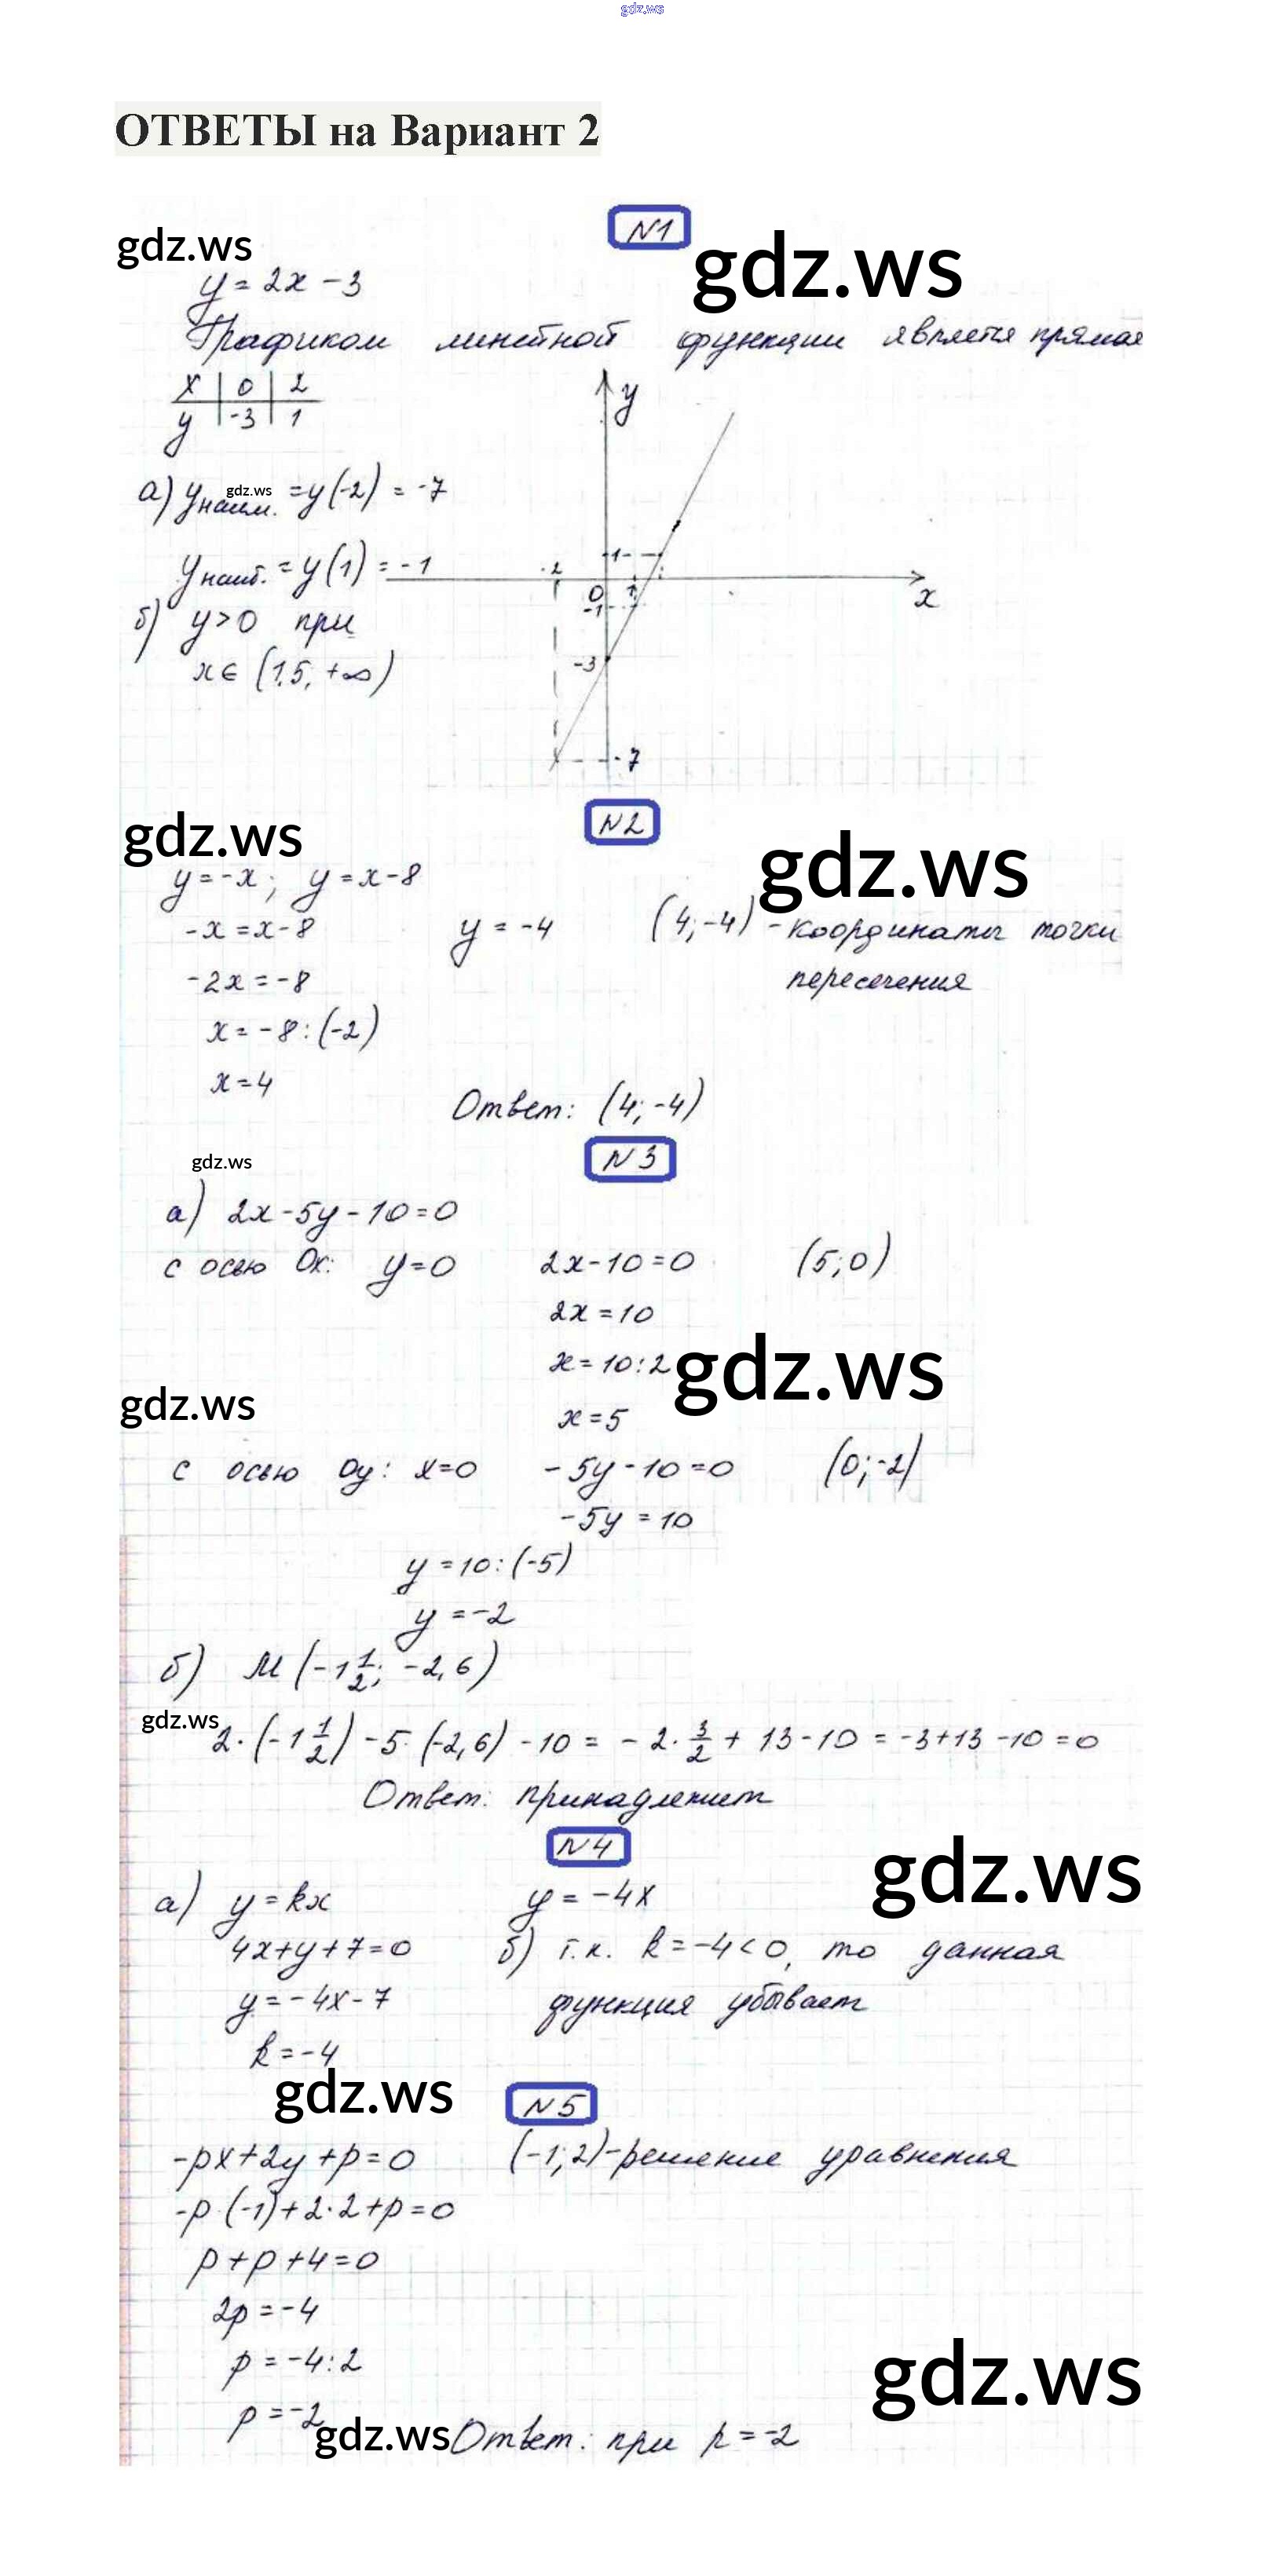 gdz.ws
ОТВЕТЫ на Вариант 2
N1
gdz.ws
gdz.ws
y = 2x - 3
Графиком линейной функции является прямая
x | 0 | 2
y | -3 | 1
y
а) y наим. = y(-2) = -7
gdz.ws
y наиб. = y(1) = -1
1
-2
0
1
x
-1
б) y>0 при
-3
x ∈ (1,5; +∞)
-7
N2
gdz.ws
gdz.ws
y = -x; y = x-8
-x = x-8 y = -4 (4; -4) - координаты точки
-2x = -8 пересечения
x = -8 : (-2)
x = 4
Ответ: (4; -4)
N3
gdz.ws
а) 2x - 5y - 10 = 0
с осью Ох: y = 0 2x - 10 = 0 (5; 0)
2x = 10
x = 10 : 2
gdz.ws
gdz.ws
x = 5
с осью Оу: x = 0 -5y - 10 = 0 (0; -2)
-5y = 10
y = 10 : (-5)
y = -2
б) M (-1 1/2; -2,6)
gdz.ws
2 · (-1 1/2) - 5 · (-2,6) - 10 = -2 · 3/2 + 13 - 10 = -3 + 13 - 10 = 0
Ответ: принадлежит
N4
gdz.ws
а) y = kx y = -4x
4x + y + 7 = 0 б) т.к. k = -4 < 0, то данная
y = -4x - 7 функция убывает
k = -4
gdz.ws
N5
-px + 2y + p = 0 (-1; 2) - решение уравнения
-p · (-1) + 2 · 2 + p = 0
p + p + 4 = 0
2p = -4
p = -4 : 2
gdz.ws
p = -2
gdz.ws
Ответ: при p = -2